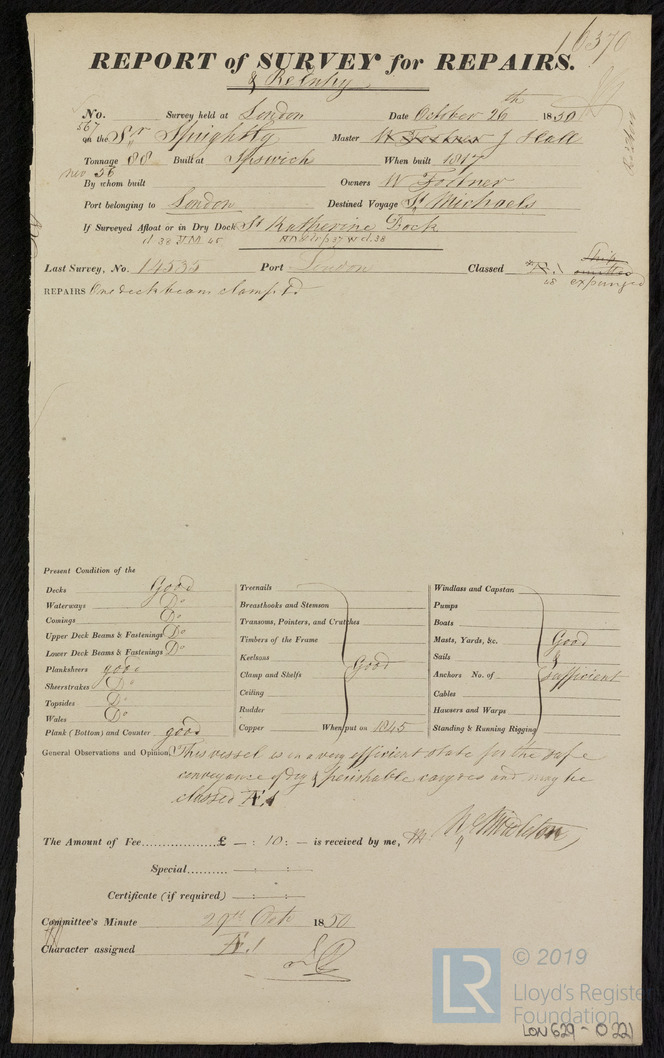 16370
REPORT of SURVEY for REPAIRS.
& ReEntry
No. 567 Survey held at London Date October 26th 1850
on the Sr Sprightly Master J Hall
Tonnage 88 Built at Ipswich When built 1817
new 56
By whom built Owners W Fortner
Port belonging to London Destined Voyage St Michaels
If Surveyed Afloat or in Dry Dock St Katherine Dock
Last Survey, No. 14535 Port London Classed
expunged
REPAIRS One deck beam clamp'd
Present Condition of the
Decks Good
Waterways Do
Comings Do
Upper Deck Beams & Fastenings Do
Lower Deck Beams & Fastenings Do
Planksheers good
Sheerstrakes Do
Topsides Do
Wales Do
Plank (Bottom) and Counter good
Treenails
Breasthooks and Stemson
Transoms, Pointers, and Crutches
Timbers of the Frame
Keelsons
Clamp and Shelfs Good
Ceiling
Rudder
Copper When put on 1845
Windlass and Capstan
Pumps
Boats
Masts, Yards, &c. Good
Sails &
Anchors No. of sufficient
Cables
Hawsers and Warps
Standing & Running Rigging
General Observations and Opinion, This vessel is in a very efficient state for the safe
conveyance of dry & perishable cargoes and may be
classed Æ 1
The Amount of Fee £ — : 10 : — is received by me,
Special
Certificate (if required)
Committee's Minute 29th Oct 1850
Character assigned Æ 1
LR © 2019
Lloyd's Register
Foundation
LON 629 - 0221